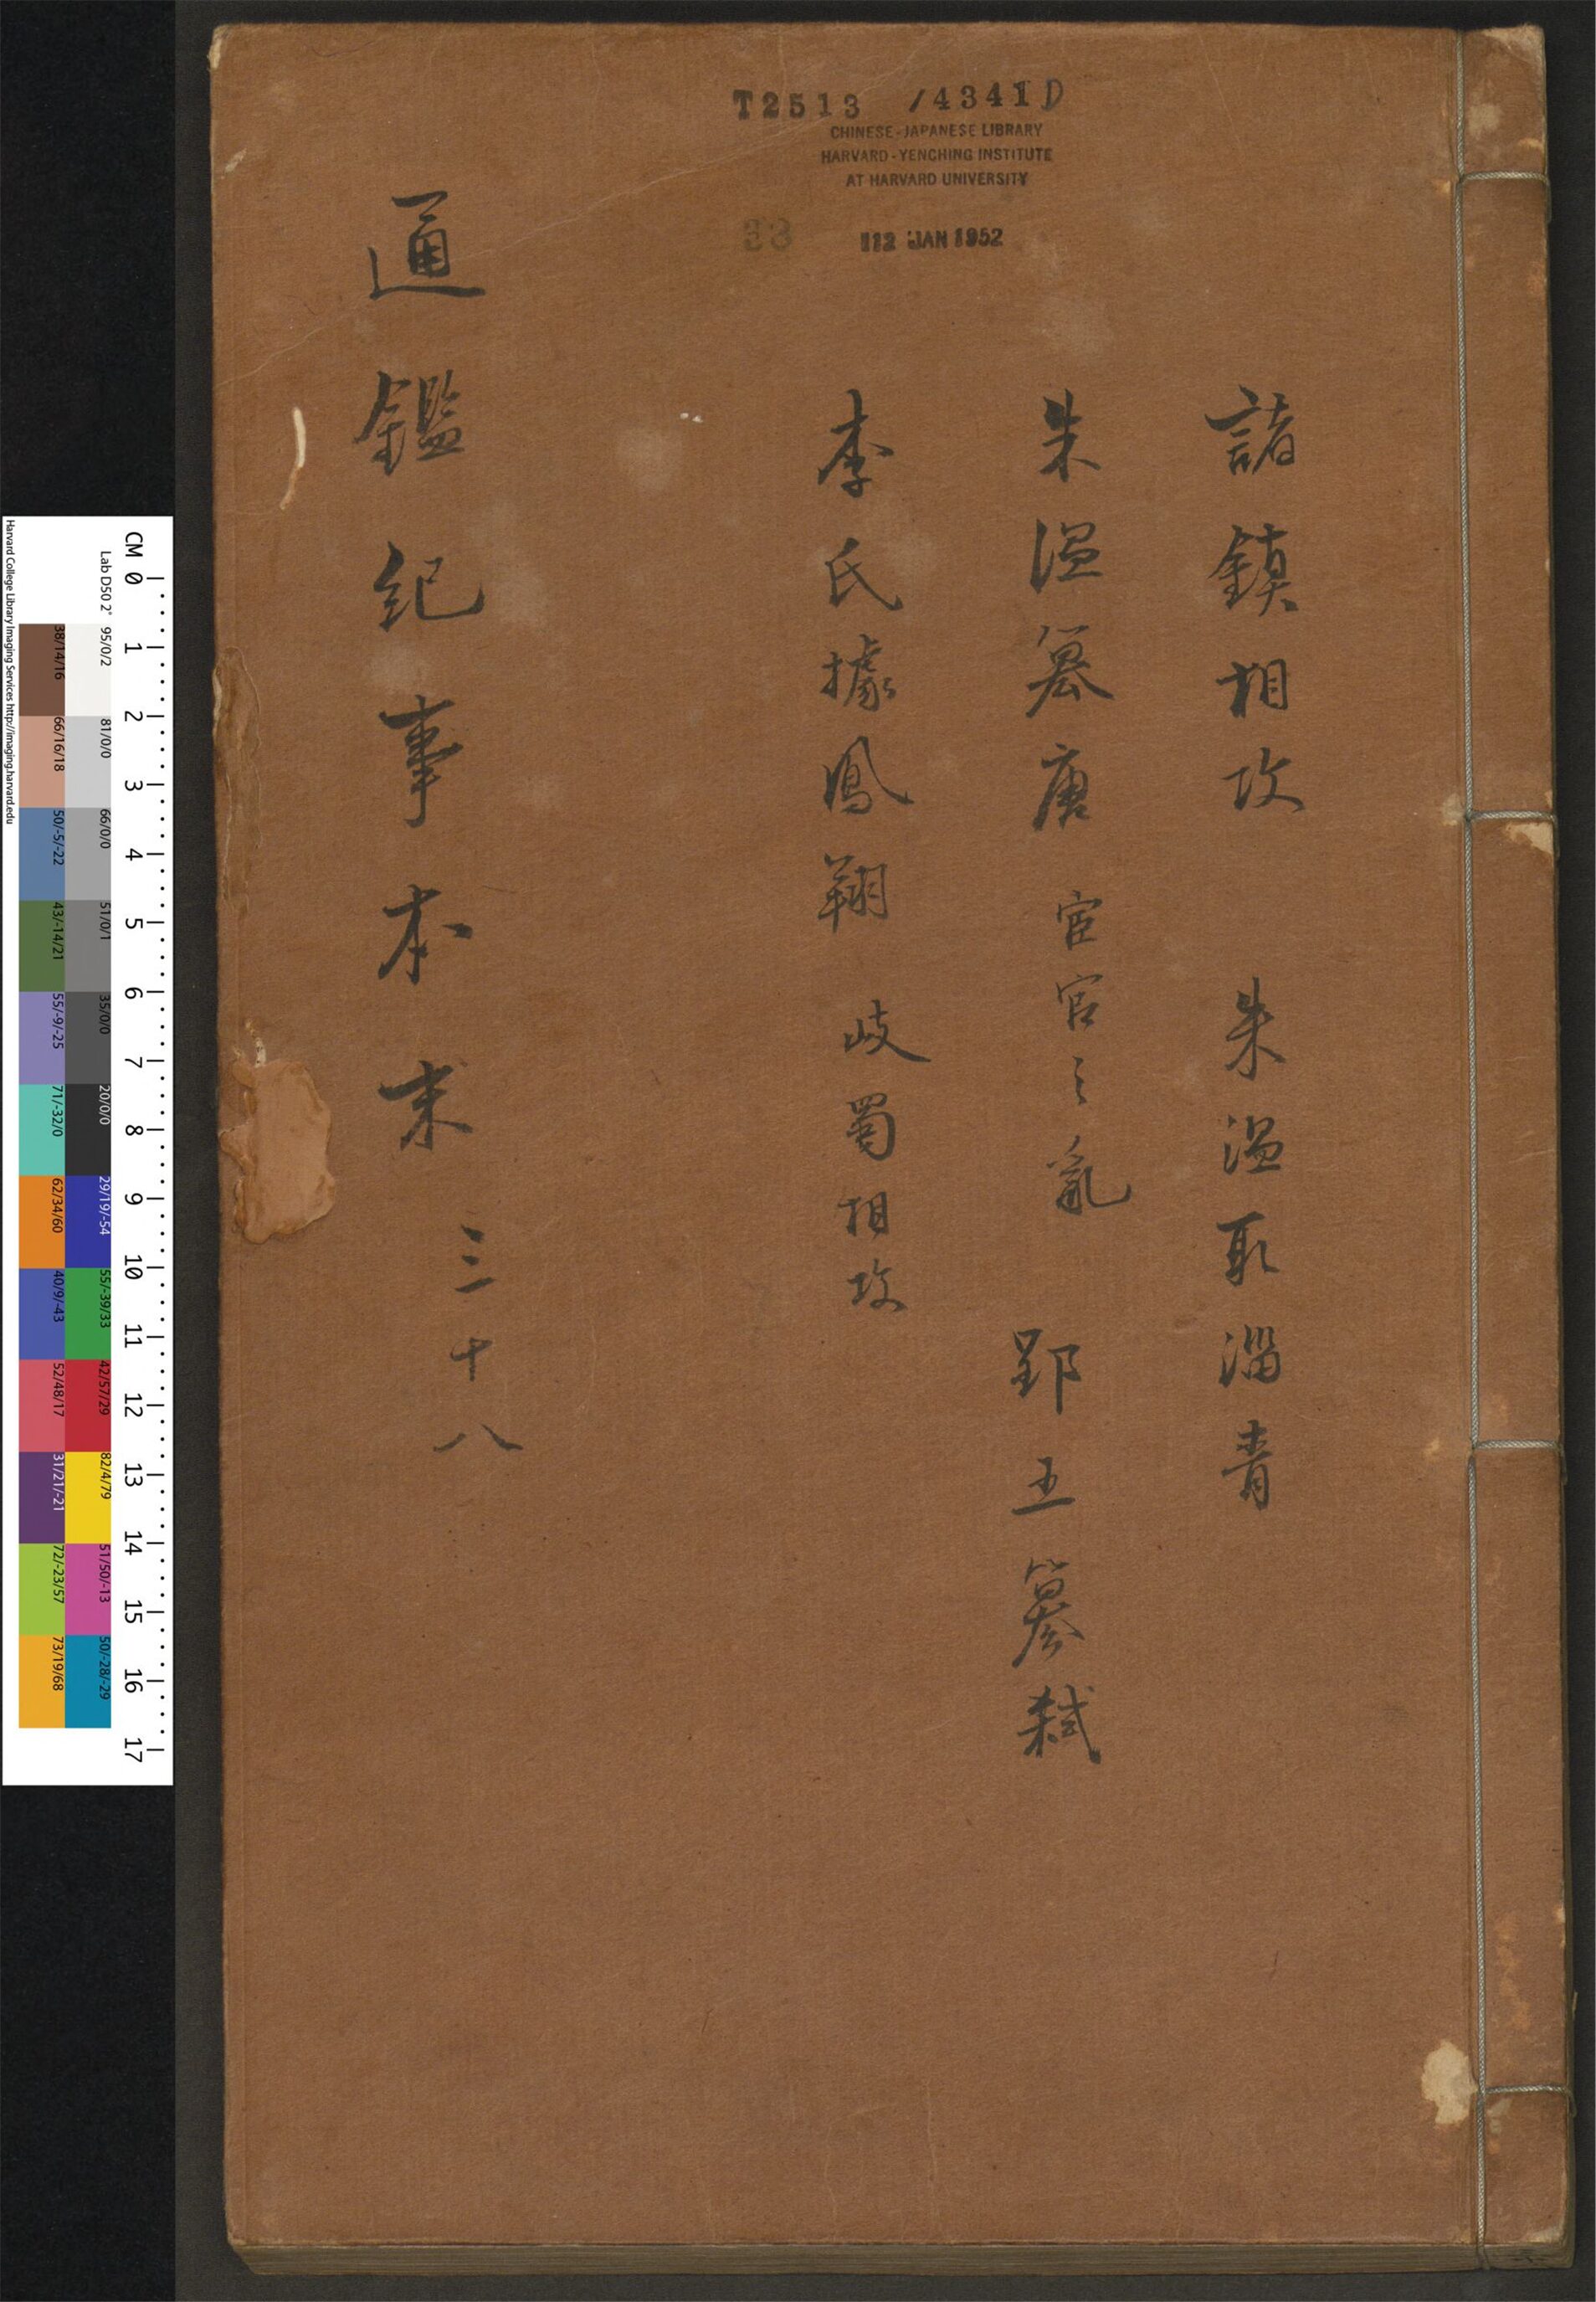 T2513 /4341D
CHINESE-JAPANESE LIBRARY
HARVARD-YENCHING INSTITUTE
AT HARVARD UNIVERSITY
12 JAN 1952
諸鎮相攻 朱温取淄青
朱温篡唐 宦官之亂 郢王篡弒
李氏據鳳翔 岐蜀相攻
通鑑紀事本末 三十八
CM 0 1 2 3 4 5 6 7 8 9 10 11 12 13 14 15 16 17
Lab D50 2° 95/0/2 81/0/0 66/0/0 51/0/1 35/0/0 20/0/0 29/19/-54 55/-39/33 42/57/29 82/4/79 51/50/-13 50/-28/-29
38/14/16 66/16/18 50/-5/-22 43/-14/21 55/-9/-25 71/-32/0 62/34/60 40/9/-43 52/48/17 31/21/-21 72/-23/57 73/19/68
Harvard College Library Imaging Services http://imaging.harvard.edu